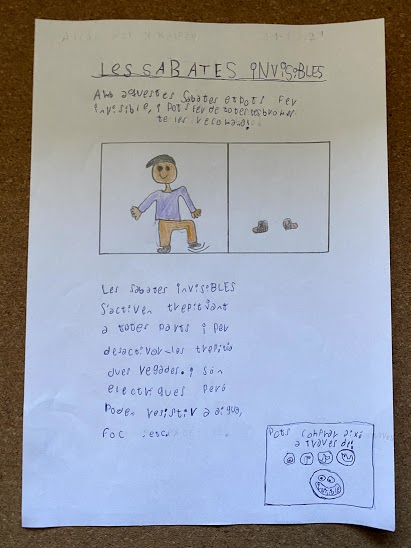 LES SABATES iNViSiBLES
Amb aquestes Sabates etpots Fer
invisible, i Pots Fer de totes
te les recomano!
Les sabates iNVisiBLES
S'activen trepitjant
a totes parts i per
desactivar-les trepitja
dues vegades. i Són
electriques però
Poden resistir a aigua,
Foc
Pots comprar això
a través de: